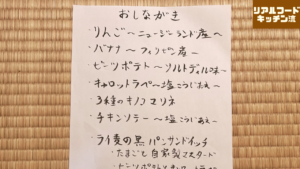 リアルフード
キッチン流
おしながき
・りんご〜ニュージーランド産〜
・バナナ〜フィリピン産〜
・ビーツポテト〜ソルトディル味〜
・キャロットラペ〜塩こうじあえ〜
・3種のキノコマリネ
・チキンソテー〜塩こうじあえ〜
・ライ麦の黒パンサンドイッチ
・たまごと自家製マスタード